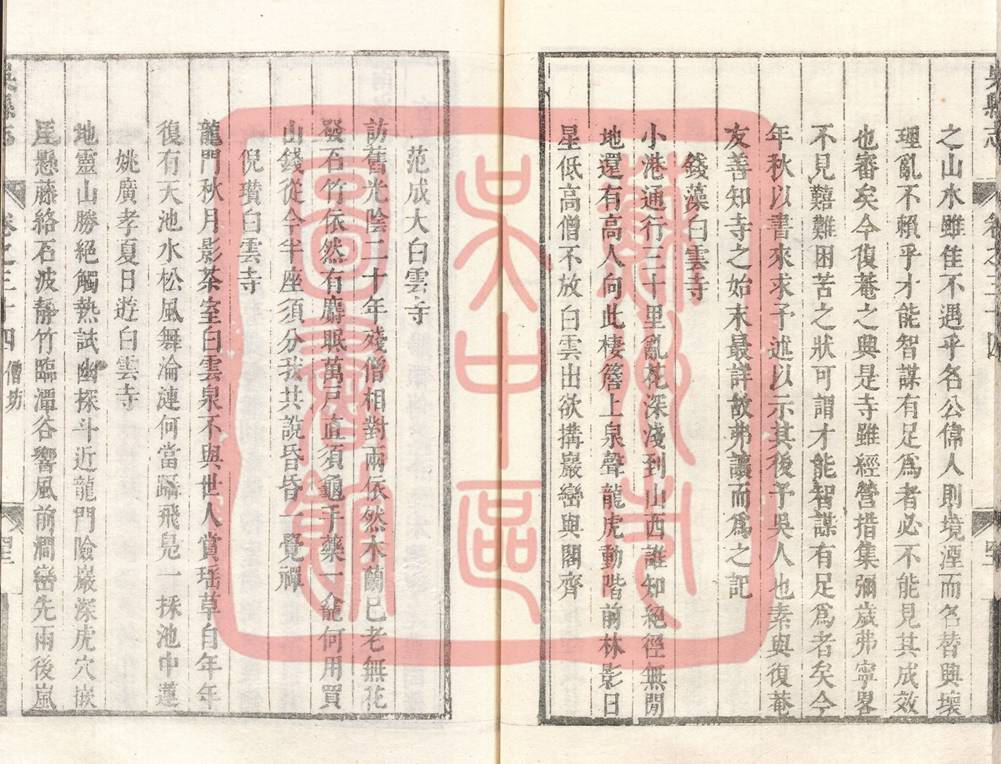 吳縣志
卷之三十四
之山水雖佳不遇乎名公偉人則境湮而名替興壞
理亂不賴乎才能智謀有足爲者必不能見其成效
也審矣今復菴之興是寺雖經營措集彌歲弗寧畧
不見囏難困苦之狀可謂才能智謀有足爲者矣今
年秋以書來求予述以示其後予吳人也素與復菴
友善知寺之始末最詳故弗讓而爲之記
錢藻白雲寺
小港通行三十里亂花深淺到山西誰知絕徑無閒
地還有高人向此棲簷上泉聲龍虎動階前林影日
星低高僧不放白雲出欲搆巖巒與閣齊
范成大白雲寺
訪舊光陰二十年殘僧相對兩依然木蘭已老無花
發石竹依然有麝眠萬戸直須龜手藥一龕何用買
山錢從今半座須分我共說昏昏一覺禪
倪瓚白雲寺
龍門秋月影茶室白雲泉不與世人賞瑶草自年年
復有天池水松風舞淪漣何當躡飛鳧一採池中蓮
姚廣孝夏日遊白雲寺
地靈山勝絕觸熱試幽探斗近龍門險巖深虎穴嵌
崖懸藤絡石波靜竹臨潭谷響風前澗巒先兩後嵐
吳縣志
卷之三十四 僧坊
蘇州市
吳中區
圖書館